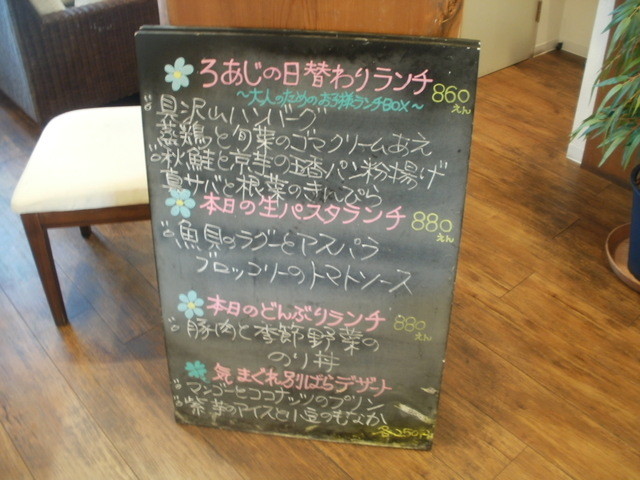 ろあじの日替わりランチ 860えん
～大人のためのお子様ランチBOX～
具沢山ハンバーグ
蒸鶏と旬菜のゴマクリームあえ
秋鮭と京芋の五香パン粉揚げ
真サバと根菜のきんぴら
本日の生パスタランチ 880えん
魚貝のラグーとアスパラ
ブロッコリーのトマトソース
本日のどんぶりランチ 880えん
豚肉と季節野菜の
のり丼
気まぐれ別ばらデザート
マンゴーとココナッツのプリン
紫芋のアイスと小豆のもなか
各150円